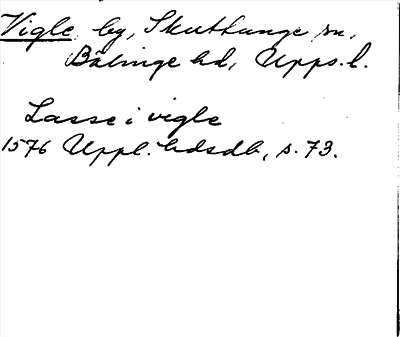 Vigle by, Skuttunge sn,
Bälinge hd, Upps. l.
Lasse i vigle
1576 Uppl. hdsdb, s. 73.